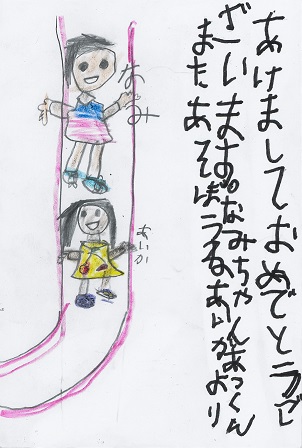 あけましておめでとうご
ざいます。なみちゃんあっくん
またあそぼうねあいかより
なみ
あいか